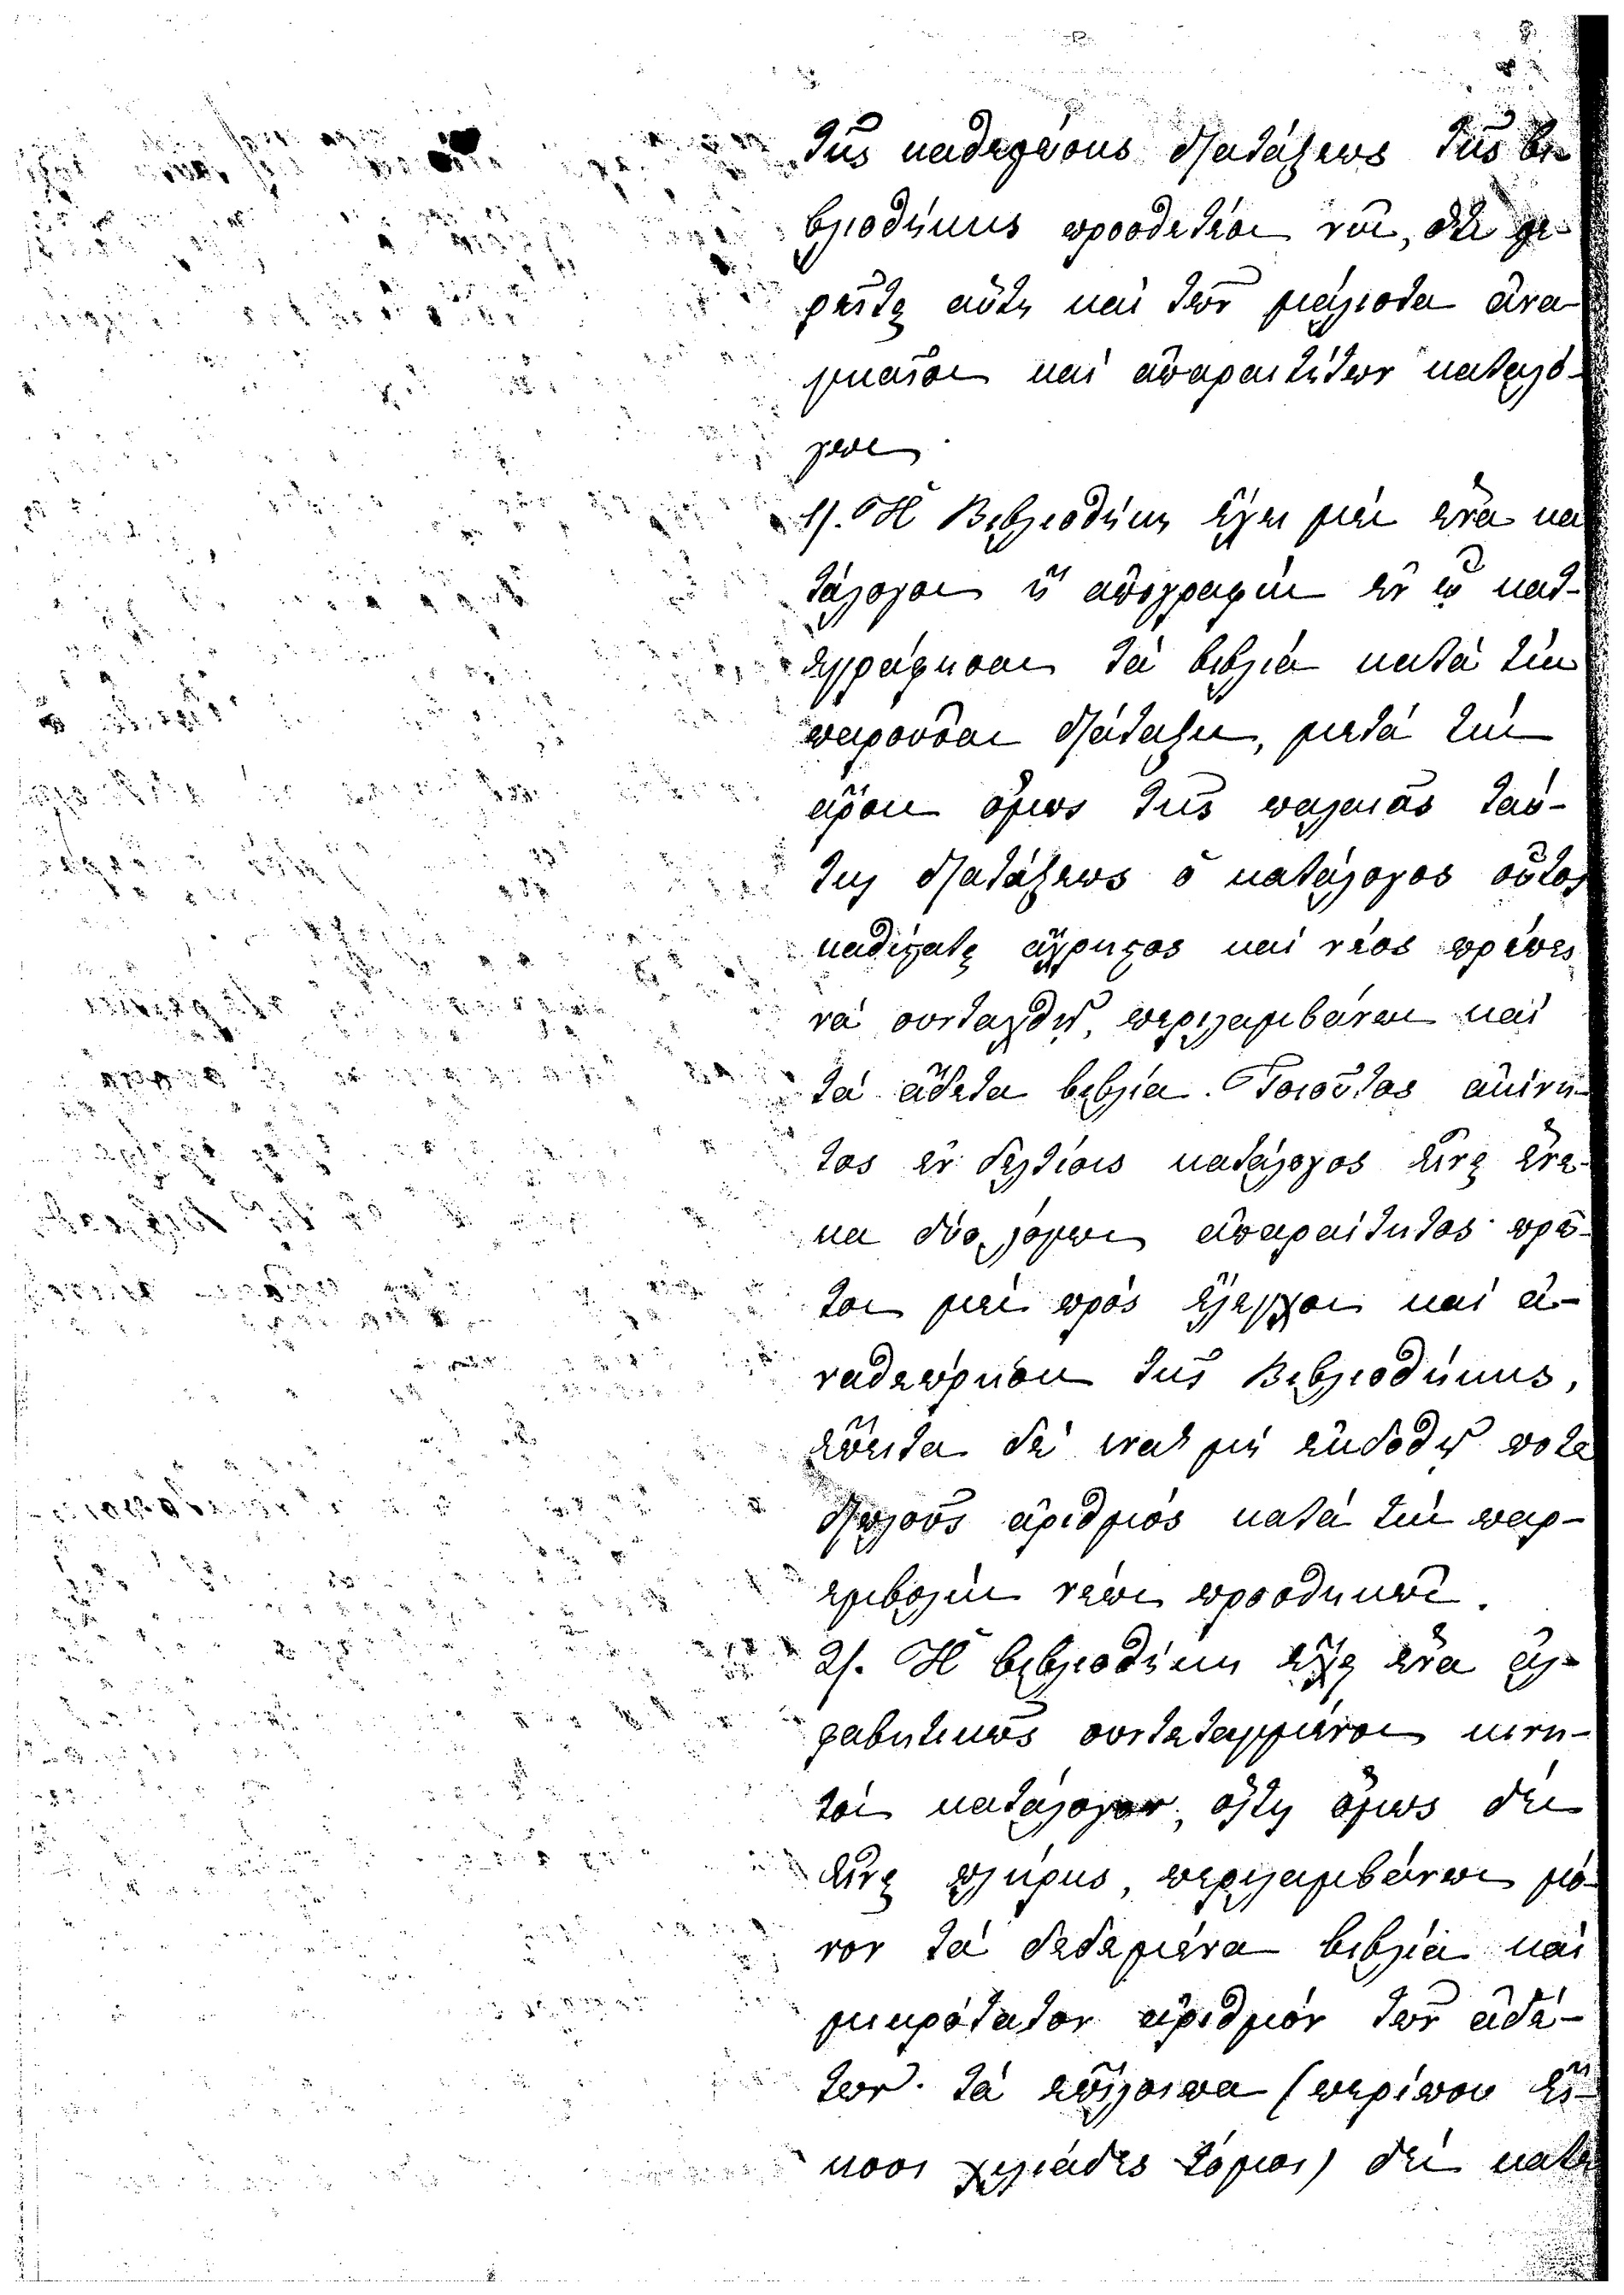 τῆς καθεμέρους διατάξεως τῆς βι-
βλιοθήκης προσθετέον νῦν, ὅτι λεί-
πεται αὕτη καὶ τῶν μάλιστα ἀνα-
γκαίων καὶ ἀπαραιτήτων καταλό-
γων.
1/. Ἡ Βιβλιοθήκη ἔχει μὲν ἕνα κα
τάλογον ἢ ἀπογραφὴν ἐν ᾧ κατ-
εγράφησαν τὰ βιβλία κατὰ τὴν
παροῦσαν διάταξιν, μετὰ τὴν
ἄρσιν ὅμως τῆς παλαιᾶς ταύ-
της διατάξεως ὁ κατάλογος οὗτος
καθίσταται ἄχρηστος καὶ νέος πρέπει
νὰ συνταχθῇ, περιλαμβάνων καὶ
τὰ ἄδετα βιβλία. Τοιοῦτος ἀκίνη-
τος ἐν δελτίοις κατάλογος εἶναι ἕνε-
κα δύο λόγων ἀπαραίτητος· πρῶ-
τον μὲν πρὸς ἔλεγχον καὶ ἀ-
ναθεώρησιν τῆς Βιβλιοθήκης,
ἔπειτα δὲ ἵνα μὴ ἐκδοθῇ ποτε
διπλοῦς ἀριθμὸς κατὰ τὴν παρ-
εμβολὴν νέων προσθηκῶν.
2/. Ἡ βιβλιοθήκη ἔχει ἕνα ἀλ-
φαβητικῶς συντεταγμένον κινη-
τὸν κατάλογον, ὅστις ὅμως δὲν
εἶναι πλήρης, περιλαμβάνων μό-
νον τὰ δεδεμένα βιβλία καὶ
μικρότατον ἀριθμὸν τῶν ἀδέ-
των· τὰ ἐπίλοιπα (περίπου εἴ-
κοσι χιλιάδες τόμοι) δὲν κατε